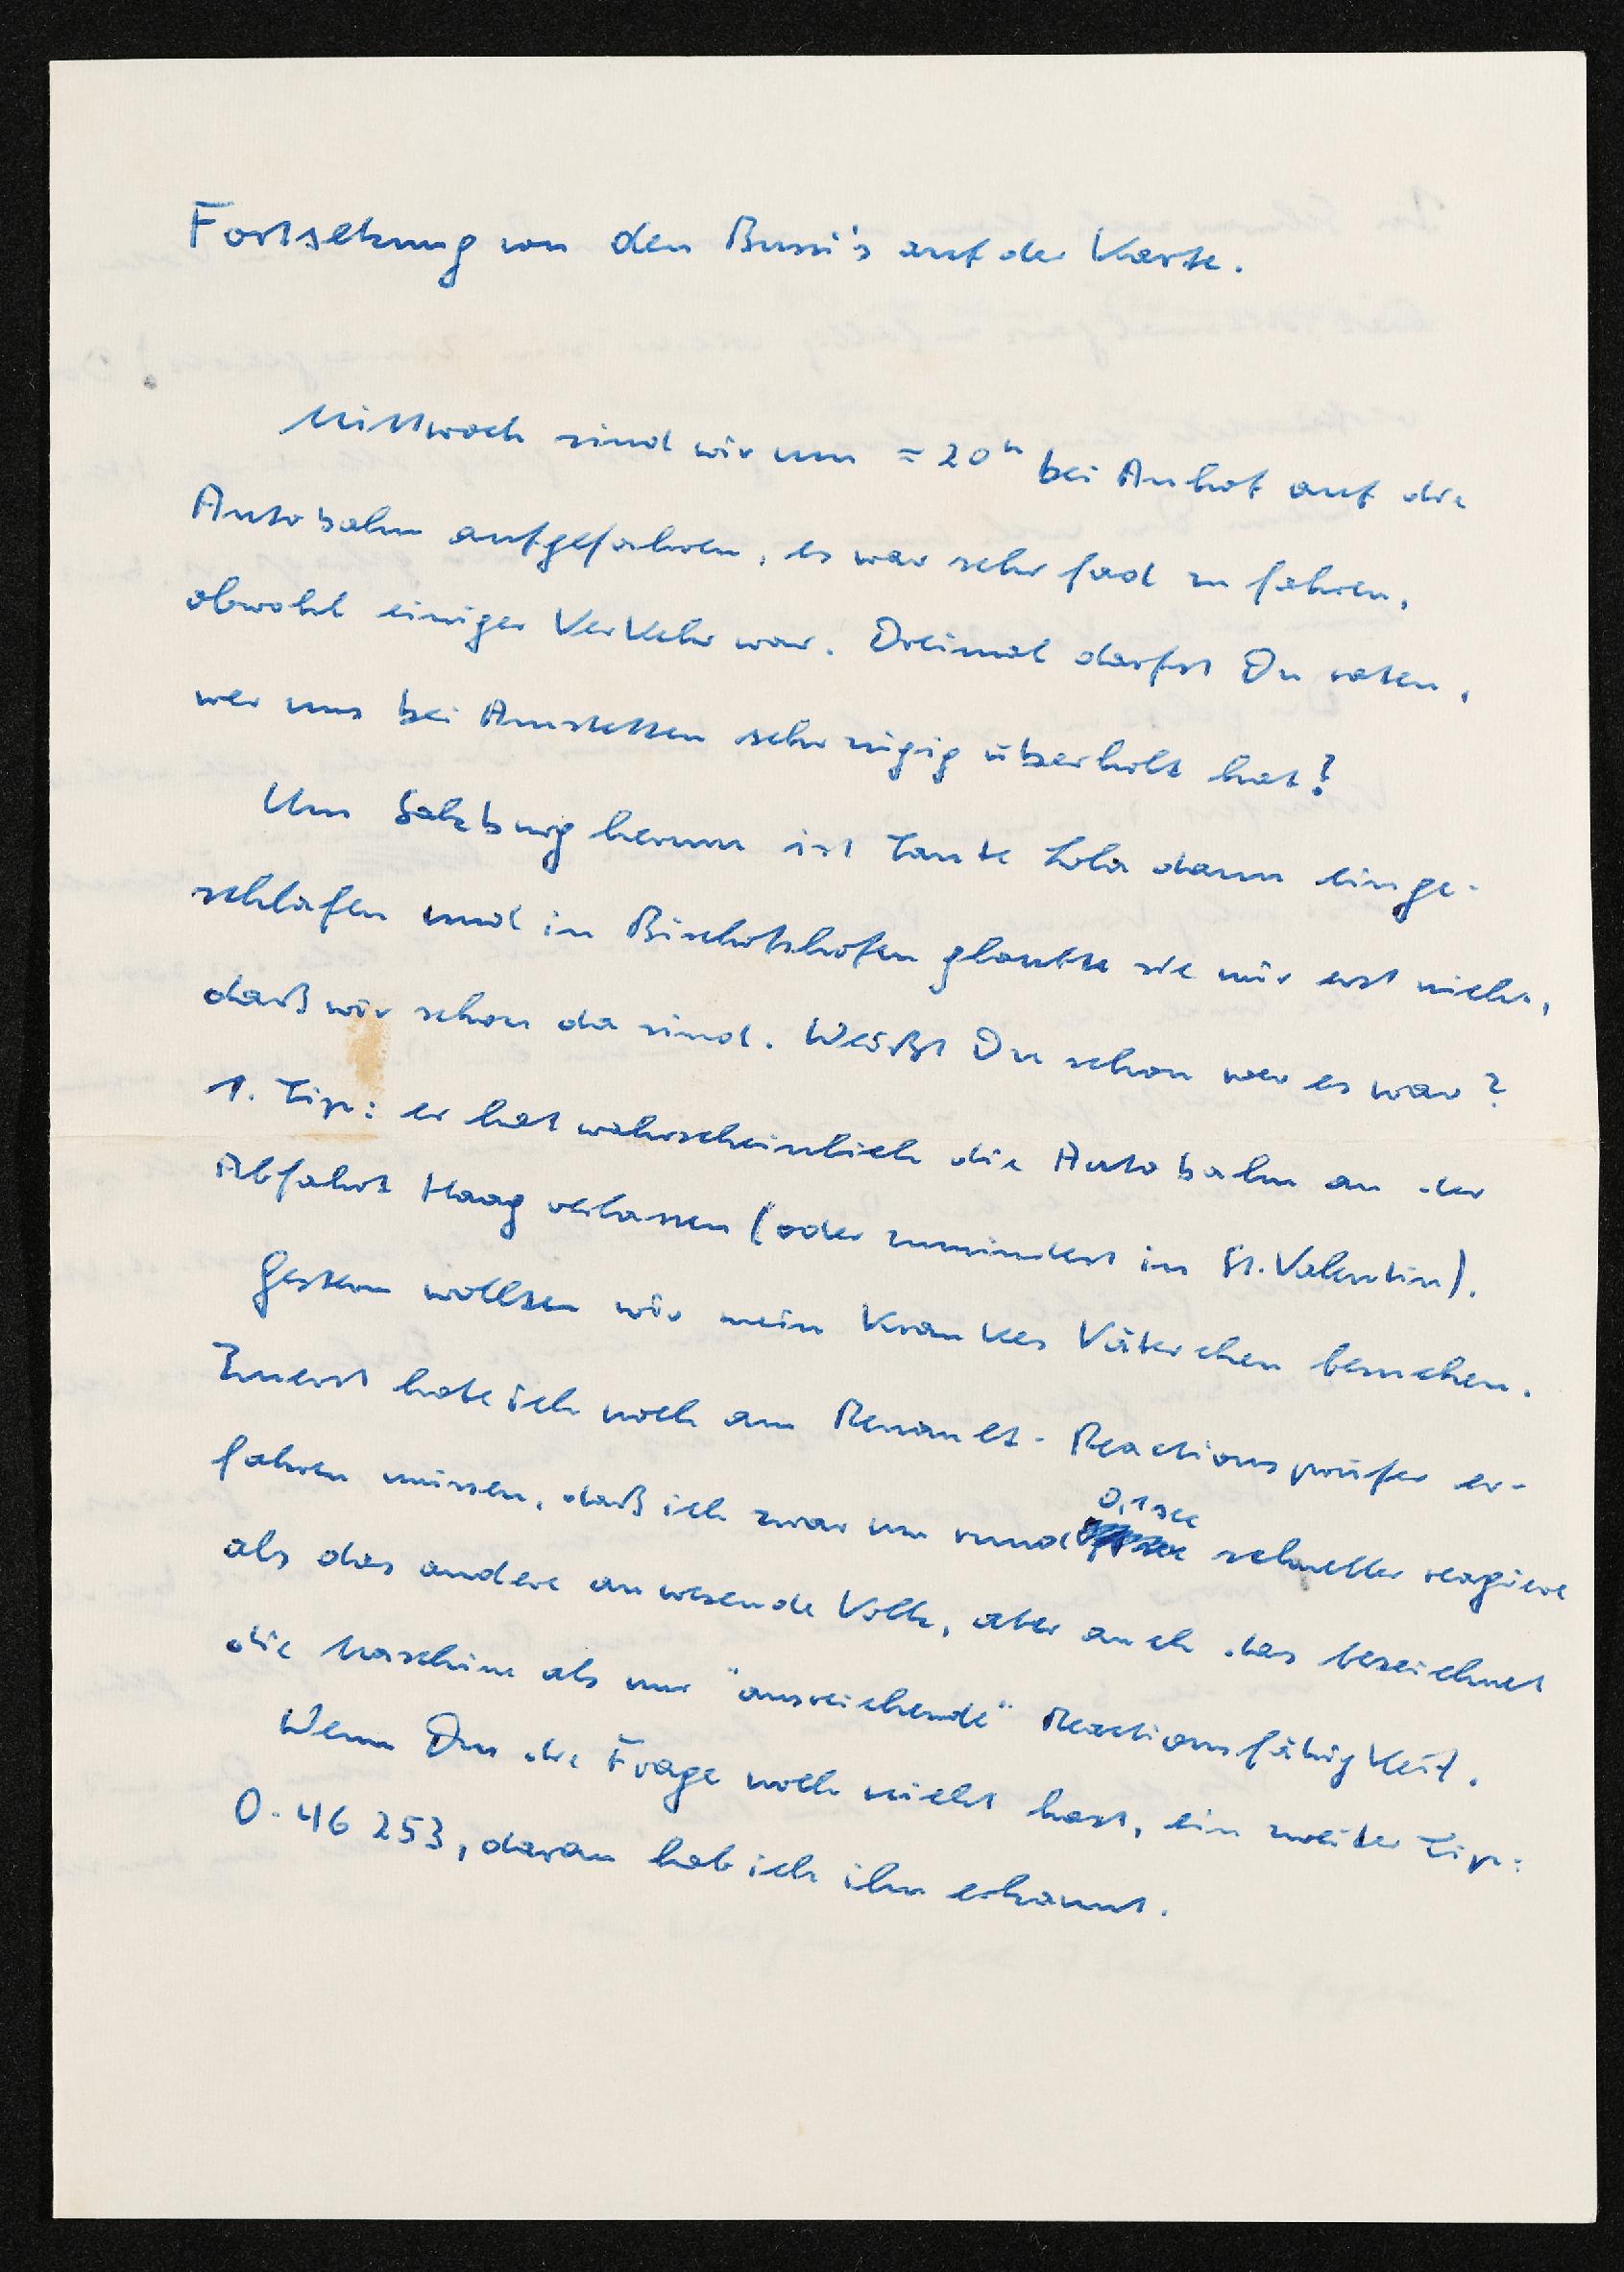 Fortsetzung von den Bussi's auf der Karte.
Mittwoch sind wir um ≈ 20ʰ bei Auhof auf die
Autobahn aufgefahren, es war sehr fad zu fahren,
obwohl einiger Verkehr war. Dreimal darfst Du raten,
wer uns bei Amstetten sehr zügig überholt hat?
Um Salzburg herum ist Tante Lola dann einge-
schlafen und in Bischofshofen glaubte sie mir erst nicht,
daß wir schon da sind. Weißt Du schon wer es war?
1. Tip: er hat wahrscheinlich die Autobahn an der
Abfahrt Haag verlassen (oder zumindest in St. Valentin).
Gestern wollten wir mein krankes Väterchen besuchen.
Zuerst habe ich noch am Renault-Reactionsprüfer er-
fahren müssen, daß ich zwar um rund 0,1 sec schneller reagiere
als das andere anwesende Volk, aber auch das bezeichnet
die Maschine als nur "ausreichende" Reactionsfähigkeit.
Wenn Du die Frage noch nicht hast, ein zweiter Tip:
O-46 253, daran hab ich ihn erkannt.